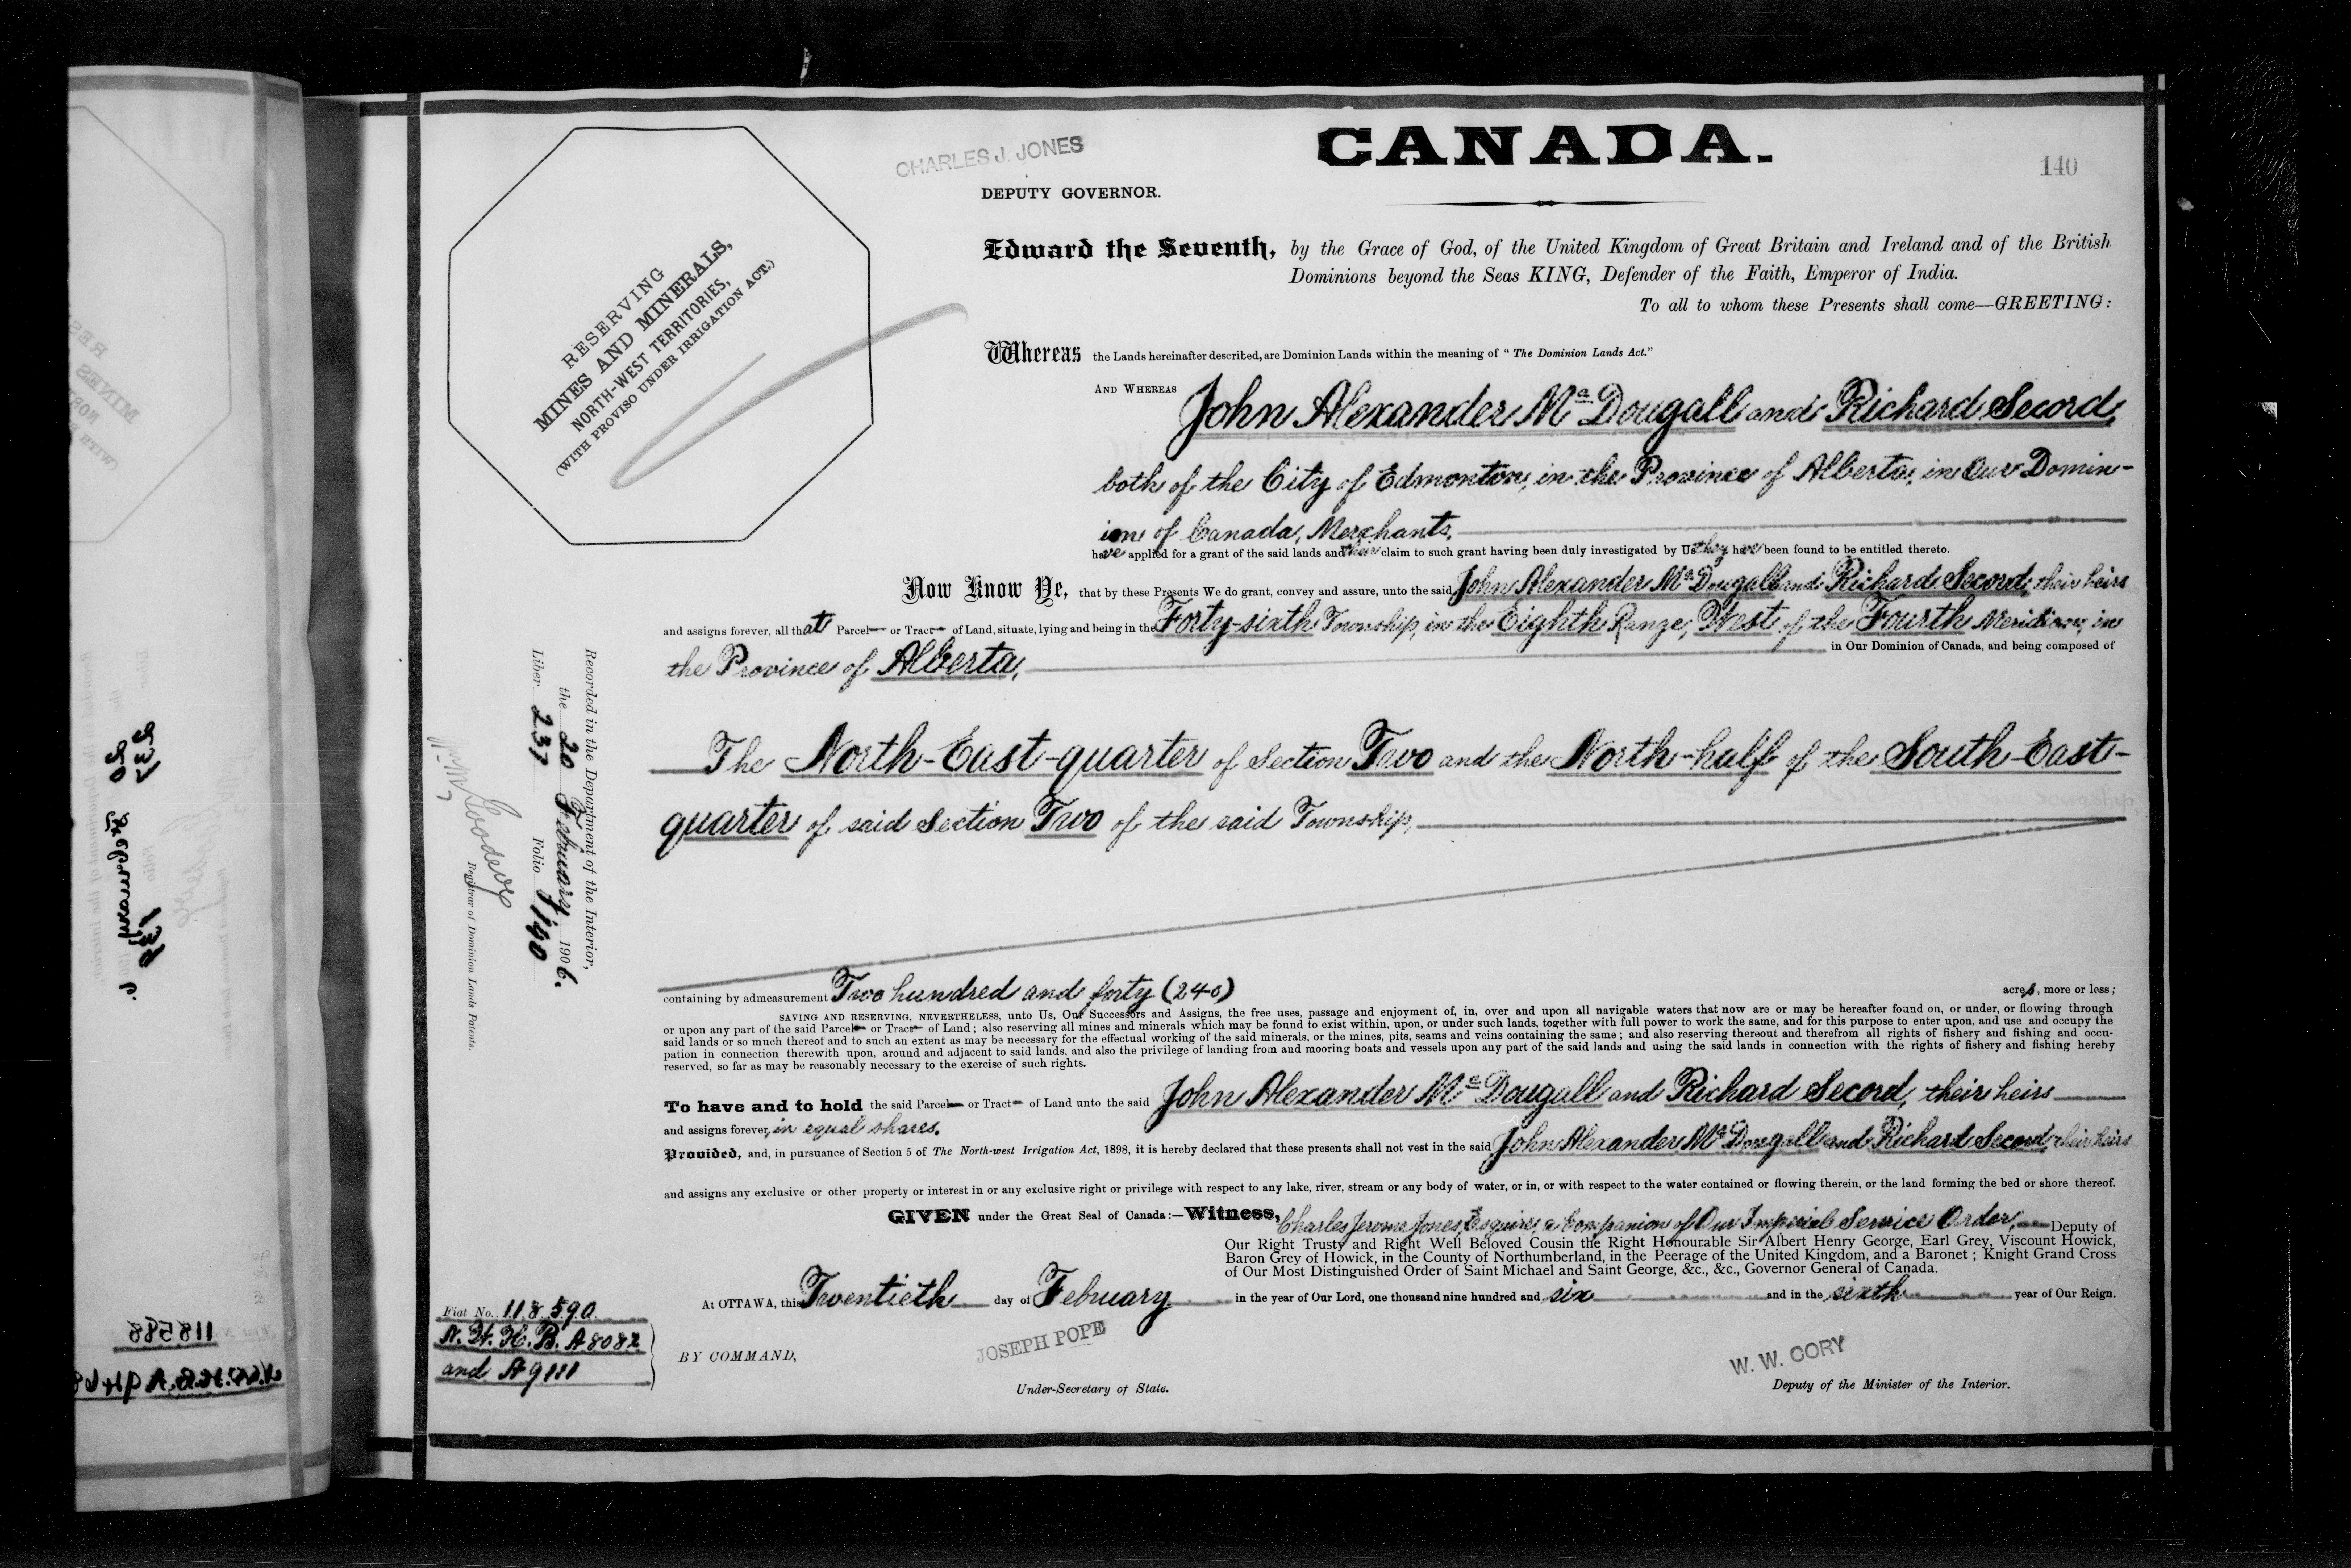 CANADA.
140
CHARLES J. JONES
DEPUTY GOVERNOR.
RESERVING
MINES AND MINERALS,
NORTH-WEST TERRITORIES,
(WITH PROVISO UNDER IRRIGATION ACT.)
Edward the Seventh, by the Grace of God, of the United Kingdom of Great Britain and Ireland and of the British
Dominions beyond the Seas KING, Defender of the Faith, Emperor of India.
To all to whom these Presents shall come—GREETING:
Whereas the Lands hereinafter described, are Dominion Lands within the meaning of "The Dominion Lands Act."
AND WHEREAS John Alexander McDougall and Richard Secord,
both of the City of Edmonton, in the Province of Alberta, in Our Domin-
ion of Canada, Merchants,
have applied for a grant of the said lands and their claim to such grant having been duly investigated by Us they have been found to be entitled thereto.
Now Know Ye, that by these Presents We do grant, convey and assure, unto the said John Alexander McDougall and Richard Secord, their heirs
and assigns forever, all that Parcel or Tract of Land, situate, lying and being in the Forty-sixth Township, in the Eighth Range, West of the Fourth Meridian, in
the Province of Alberta, in Our Dominion of Canada, and being composed of
The North-East-quarter of Section Two and the North-half of the South-East-
quarter of said Section Two of the said Township,
containing by admeasurement Two hundred and forty (240) acres, more or less;
SAVING AND RESERVING, NEVERTHELESS, unto Us, Our Successors and Assigns, the free uses, passage and enjoyment of, in, over and upon all navigable waters that now are or may be hereafter found on, or under, or flowing through
or upon any part of the said Parcel or Tract of Land; also reserving all mines and minerals which may be found to exist within, upon, or under such lands, together with full power to work the same, and for this purpose to enter upon, and use and occupy the
said lands or so much thereof and to such an extent as may be necessary for the effectual working of the said minerals, or the mines, pits, seams and veins containing the same; and also reserving thereout and therefrom all rights of fishery and fishing and occu-
pation in connection therewith upon, around and adjacent to said lands, and also the privilege of landing from and mooring boats and vessels upon any part of the said lands and using the said lands in connection with the rights of fishery and fishing hereby
reserved, so far as may be reasonably necessary to the exercise of such rights.
To have and to hold the said Parcel or Tract of Land unto the said John Alexander McDougall and Richard Secord, their heirs
and assigns forever, in equal shares.
Provided, and, in pursuance of Section 5 of The North-west Irrigation Act, 1898, it is hereby declared that these presents shall not vest in the said John Alexander McDougall and Richard Secord, their heirs
and assigns any exclusive or other property or interest in or any exclusive right or privilege with respect to any lake, river, stream or any body of water, or in, or with respect to the water contained or flowing therein, or the land forming the bed or shore thereof.
GIVEN under the Great Seal of Canada:—Witness, Charles Jerome Jones, Esquire, a Companion of Our Imperial Service Order, Deputy of
Our Right Trusty and Right Well Beloved Cousin the Right Honourable Sir Albert Henry George, Earl Grey, Viscount Howick,
Baron Grey of Howick, in the County of Northumberland, in the Peerage of the United Kingdom, and a Baronet; Knight Grand Cross
of Our Most Distinguished Order of Saint Michael and Saint George, &c., &c., Governor General of Canada.
At OTTAWA, this Twentieth day of February in the year of Our Lord, one thousand nine hundred and six and in the sixth year of Our Reign.
BY COMMAND,
JOSEPH POPE
Under-Secretary of State.
W. W. CORY
Deputy of the Minister of the Interior.
Recorded in the Department of the Interior,
the 20 February 1906.
Liber 237 Folio 140
Registrar of Dominion Lands Patents.
Fiat No. 118590
N. W. H. B. A8082
and A9111
118588